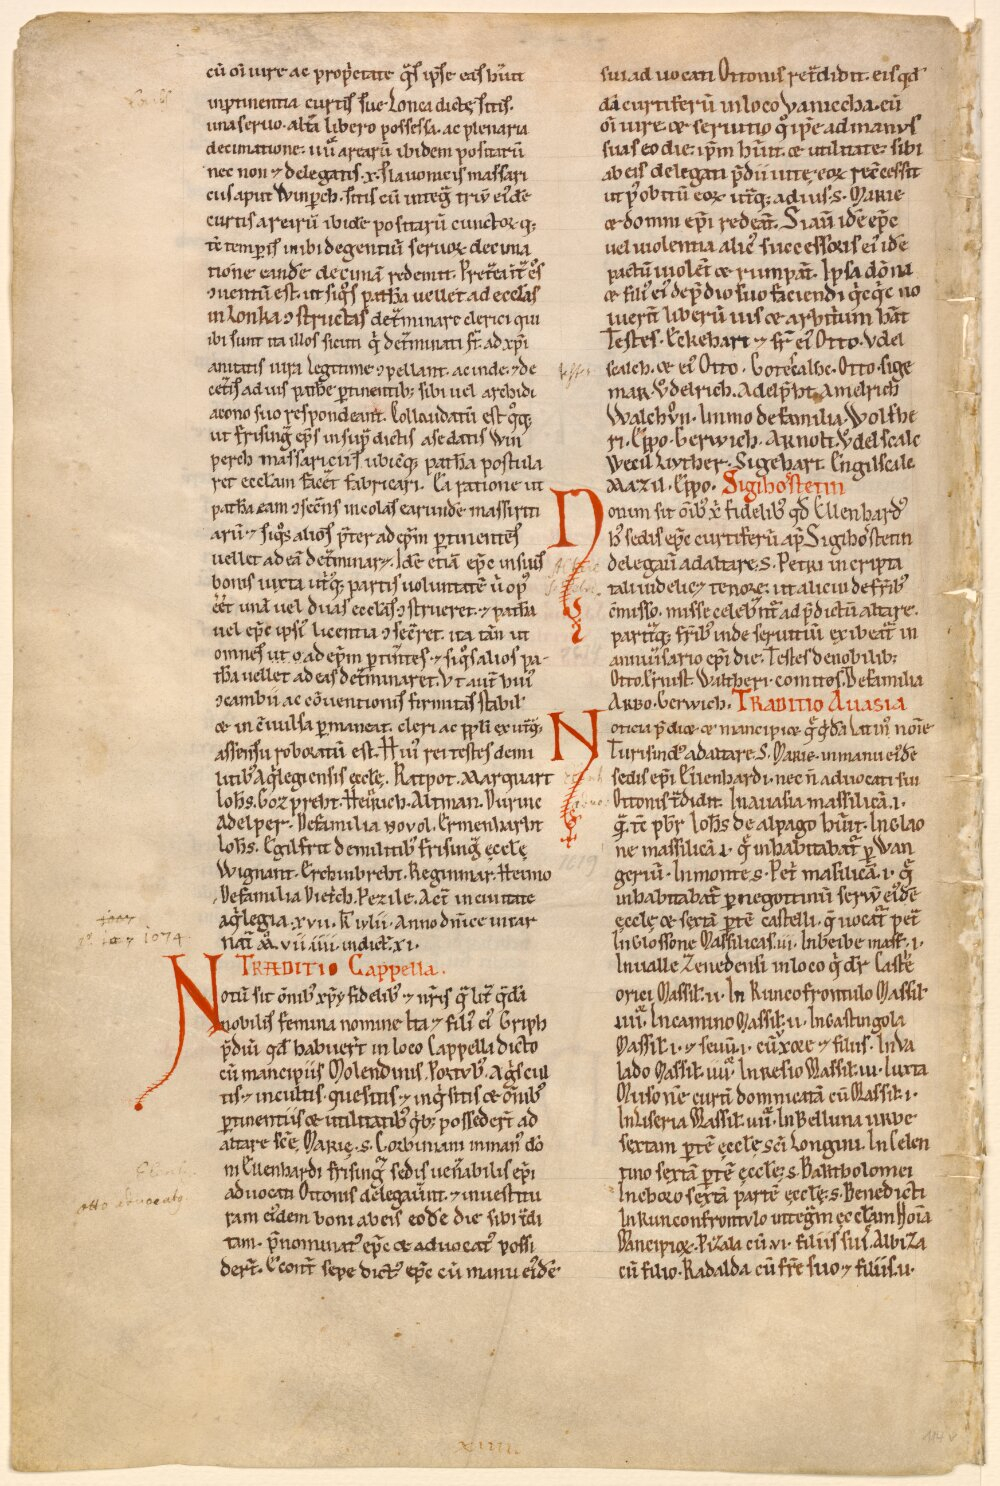 cū om̄i iure ac prop̄etate q̄s ip̄se eis hūit
inptinentia curtis sue Lonca dictę sitis.
una seruo. altā libero possessa. ac plenaria
decimatione. uii arearū ibidem positarū
nec non ⁊ delegatis .x. slauonicis massari
ciis aput Winp̄ch. sitis cū inteḡ triū ei'dē
curtis areirū ibidē positarū cunctoꝝ q;
tē temporis inibi degentiū seruoꝝ decima
tione eandē decimā redemit. Pret̄ea it̄ eos
ɔuentū est. ut siq's patħa uellet ad eccl̄as
in Lonka ɔstructas det̄minare clerici qui
ibi sunt ita illos sicuti q̄ det̄minati st̄. ad xp̄i
anitatis iura legitime ɔpellant. ac inde ⁊ de
cet̄is ad ius patħe ptinentib; sibi uel archidi
acono suo respondeant. Collaudatū est q̊q;
ut frisinḡ ep̄s insup dictis a se datis Win
perch massariciis ubicūq; patħa postula
ret eccl̄am facēt fabricari. Ea ratione ut
patħa eam ɔsec̄ns incolas earundē massiriti
arū. ⁊ siq̊s alios p̄ter ad ep̄m ptinentes
uellet ad eā det̄minaret. Idē etiā ep̄c in suis
bonis iuxta ut'q; partis uoluntatē ū op'
eēt unā uel duas eccl̄as ɔstrueret. ⁊ patħa
uel ep̄c ipsi' licentia ɔsec̄ret. ita tam̄ ut
omnes ut ɔ ad ep̄m ptinētes. ⁊ siq̊s alios pa-
tħa uellet ad eas det̄minaret. Vt aut̄ hui'
ɔcambii ac cōuentionis firmitas stabil'
&amp; in ɔ̄uulsa pmaneat. cleri ac ppl̄i ex ut'q;
assensu roboratū est. Hui' rei testes de mi
litib' aq̄legiensis eccl̄ę. Ratpot. Marquart
Ioħs. Gozpreht. Heīrich. Altman. Durinc
Adelper. De familia Wolvol. Ermenhardt
Ioħs. Egilfrit de militib' frisinḡ ęcclę
Wignant. Erchinbreht. Reginmar. Heimo
De familia Diet̄ch. Pezile. Act̄ in ciuitate
aq̄legia .xvii. kł iulii. Anno dn̄icę incar
nat̄ .M̄. vii iiii. indict̄ .xi.
Traditio Cappella.
Notū sit om̄ib' xp̄i fidelib' ⁊ nr̄is q̄lit̄ q̄dā
nobilis femina nomine Ita ⁊ fili' ei' Griph
p̄diū qd̄ habuer̄t in loco Cappella dicto
cū mancipiis Molendinis. Portub'. Agris cul
tis ⁊ incultis. quesitis ⁊ inq̄sitis &amp; om̄ib'
ptinentiis &amp; utilitatib' qb; posseder̄t ad
altare sc̄ę MARIĘ. s. Corbiniani in man' dō
m̄ Ellenhardi frisinḡ sedis uen̄abilis ep̄i
aduocati Ottonis delegauīnt. ⁊ inuestitu
ram ei'dem boni ab eis eodē die sibi t̄di
tam. p̄nominat' ep̄c &amp; aduocat' possi
der̄t. E cont̄ sepe dict' ep̄c cū manu ei'dē
sui aduocati Ottonis ret̄didit. eis qd'
dā curtiferū in loco Vaniccha. cū
om̄i iure &amp; seruitio q̊ ip̄e ad manus
suas eo die ip̄m hūit. &amp; utilitate. sibi
ab eis delegati p̄dii uitę eoꝝ recc̄essit
ut p' obitū eoꝝ ut'q; ad ius. s. MARIE
&amp; domni ep̄i redeat̄. Si aut̄ idē ep̄c
uel uiolentia alic' successoris ei' idē
pactū uiolet̄ &amp; rumpat̄. Ipsa dom̄na
&amp; fili' ei' de p̄dio suo faciendi q̄cq̄c no
uerit liberū ius &amp; arbitrium hāt
Testes. Ekkehart. ⁊ fr̄ ei' Otto. Ŏdel
scalch. &amp; ei' Otto. Gotescalhc. Otto. Sige
mar. Ŏdelrich. Adelp̄ht. Amelrich
Walchŏn. Immo de familia. Wolfhe
ri. Eppo. Gerwich. Arnolt. Ŏdelscalc
Wecil. Luther. Sigehart. Engilscalc
Mazil. Eppo. Sigihostetin
Notum sit om̄ib' x̄p̄ fidelib' qd̄ Ellenhard'
h' sedis ep̄c curtiferū ap̄ Sigihŏstetin
delegaū ad altare. s. PETRI in cripta
tali uidelic⁊ tenore. ut alicui de fr̄ib'
cōmisso. misse celebrent̄ ad p̄dictū altare.
partiq; fr̄ib' inde seruitiū exibeat̄ in
anniūsario ep̄i die. Testes de nobilib;
Otto. Ernust. Waltheri. comites. De familia
Arbo. Gerwich. Traditio Auasia
Noticia p̄dioꝝ &amp; mancipioꝝ q̄ q'dā latin' noīe
Turisind' ad altare .S. MARIE. in manu ei'dē
sedis ep̄i. Ellenhardi. nec n̄ aduocati sui
Ottonis t̄didit. In auasia massilicā .i.
q̄. tē pb̄r Ioħs de alpago hūit. In Glao
ne massilicā .i. q̄ inhabitabat̄ p Wan
geriū. In monte. s. Pet̄ masilicā .i. q̄
inhabitabat̄ p negottinū seruū ei'dē
ęcclę &amp; sextā partē castelli. q̄ uocat̄ pet̄
In Glossone Massilicas .iii. In beibe mass̄ .i.
In ualle Zenedensi in loco q̄ dr̄ Caste
orici Massił .ii. In Runcofrontulo Massił
.iiii. In camino Massił .ii. In Gastingola
Massił .i. ⁊ seuū .i. cū uxore ⁊ filiis. In ua
lado Massił .iiii. In Resio Massił .iii. Iuxta
Musonē curtā domnicatā cū Massił .i.
In Liseria Massił .viii. In Belluna urbe
sextam partē ęcclę sc̄i Longini. In Celen
tino sextā partē ęcclę. s. Bartholomei
In eboro sextā partē ęcclę. s. Benedicti
In Runconfrontulo inteḡm ęccl̄am Noīa
Mancipioꝝ. Pizala cū .vi. filiis suis. Albiza
cū filio. Radalda cū fr̄e suo. ⁊ filiis .ii.
1074
otto advocat9
1619
XIIII.
114 v